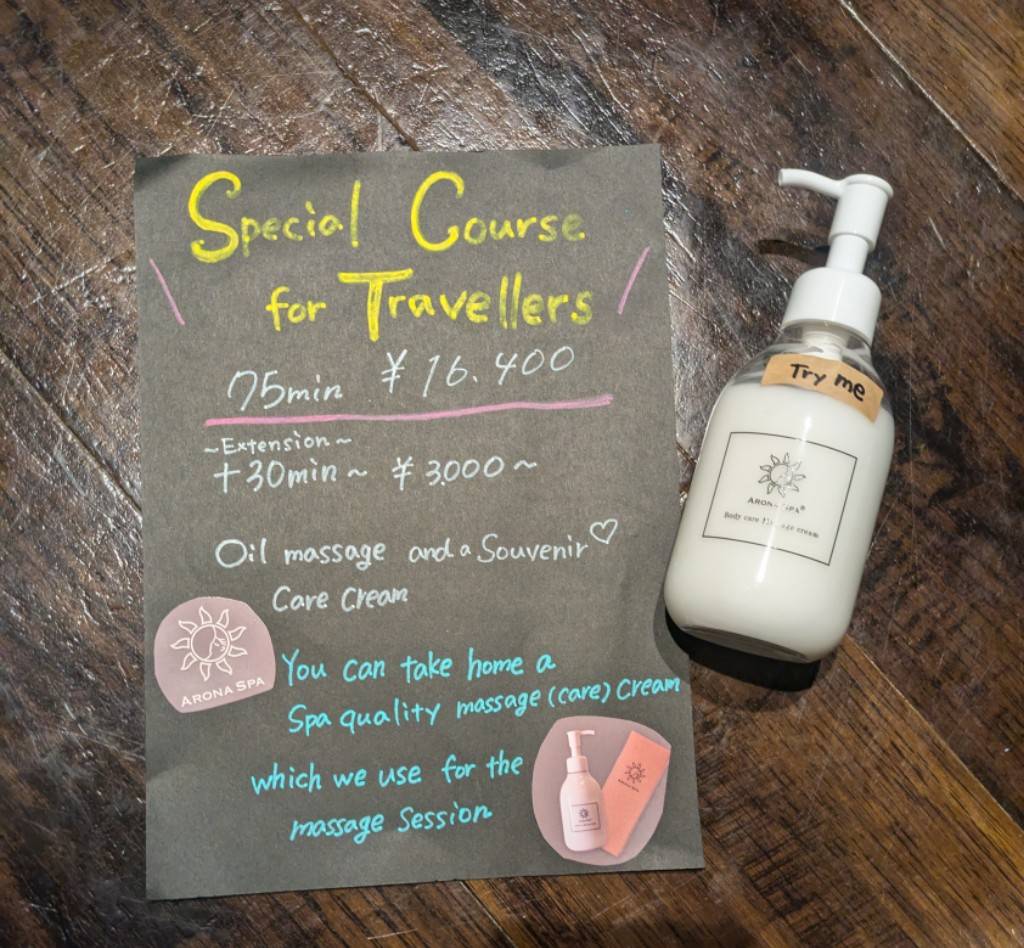 Special Course
for Travellers
75min ¥16.400
~Extension~
+30min~ ¥3.000~
Oil massage and a Souvenir♡
Care Cream
ARONA SPA
You can take home a
Spa quality massage (care) Cream
which we use for the
massage Session
Try me
ARONA SPA®
Body care Massage cream